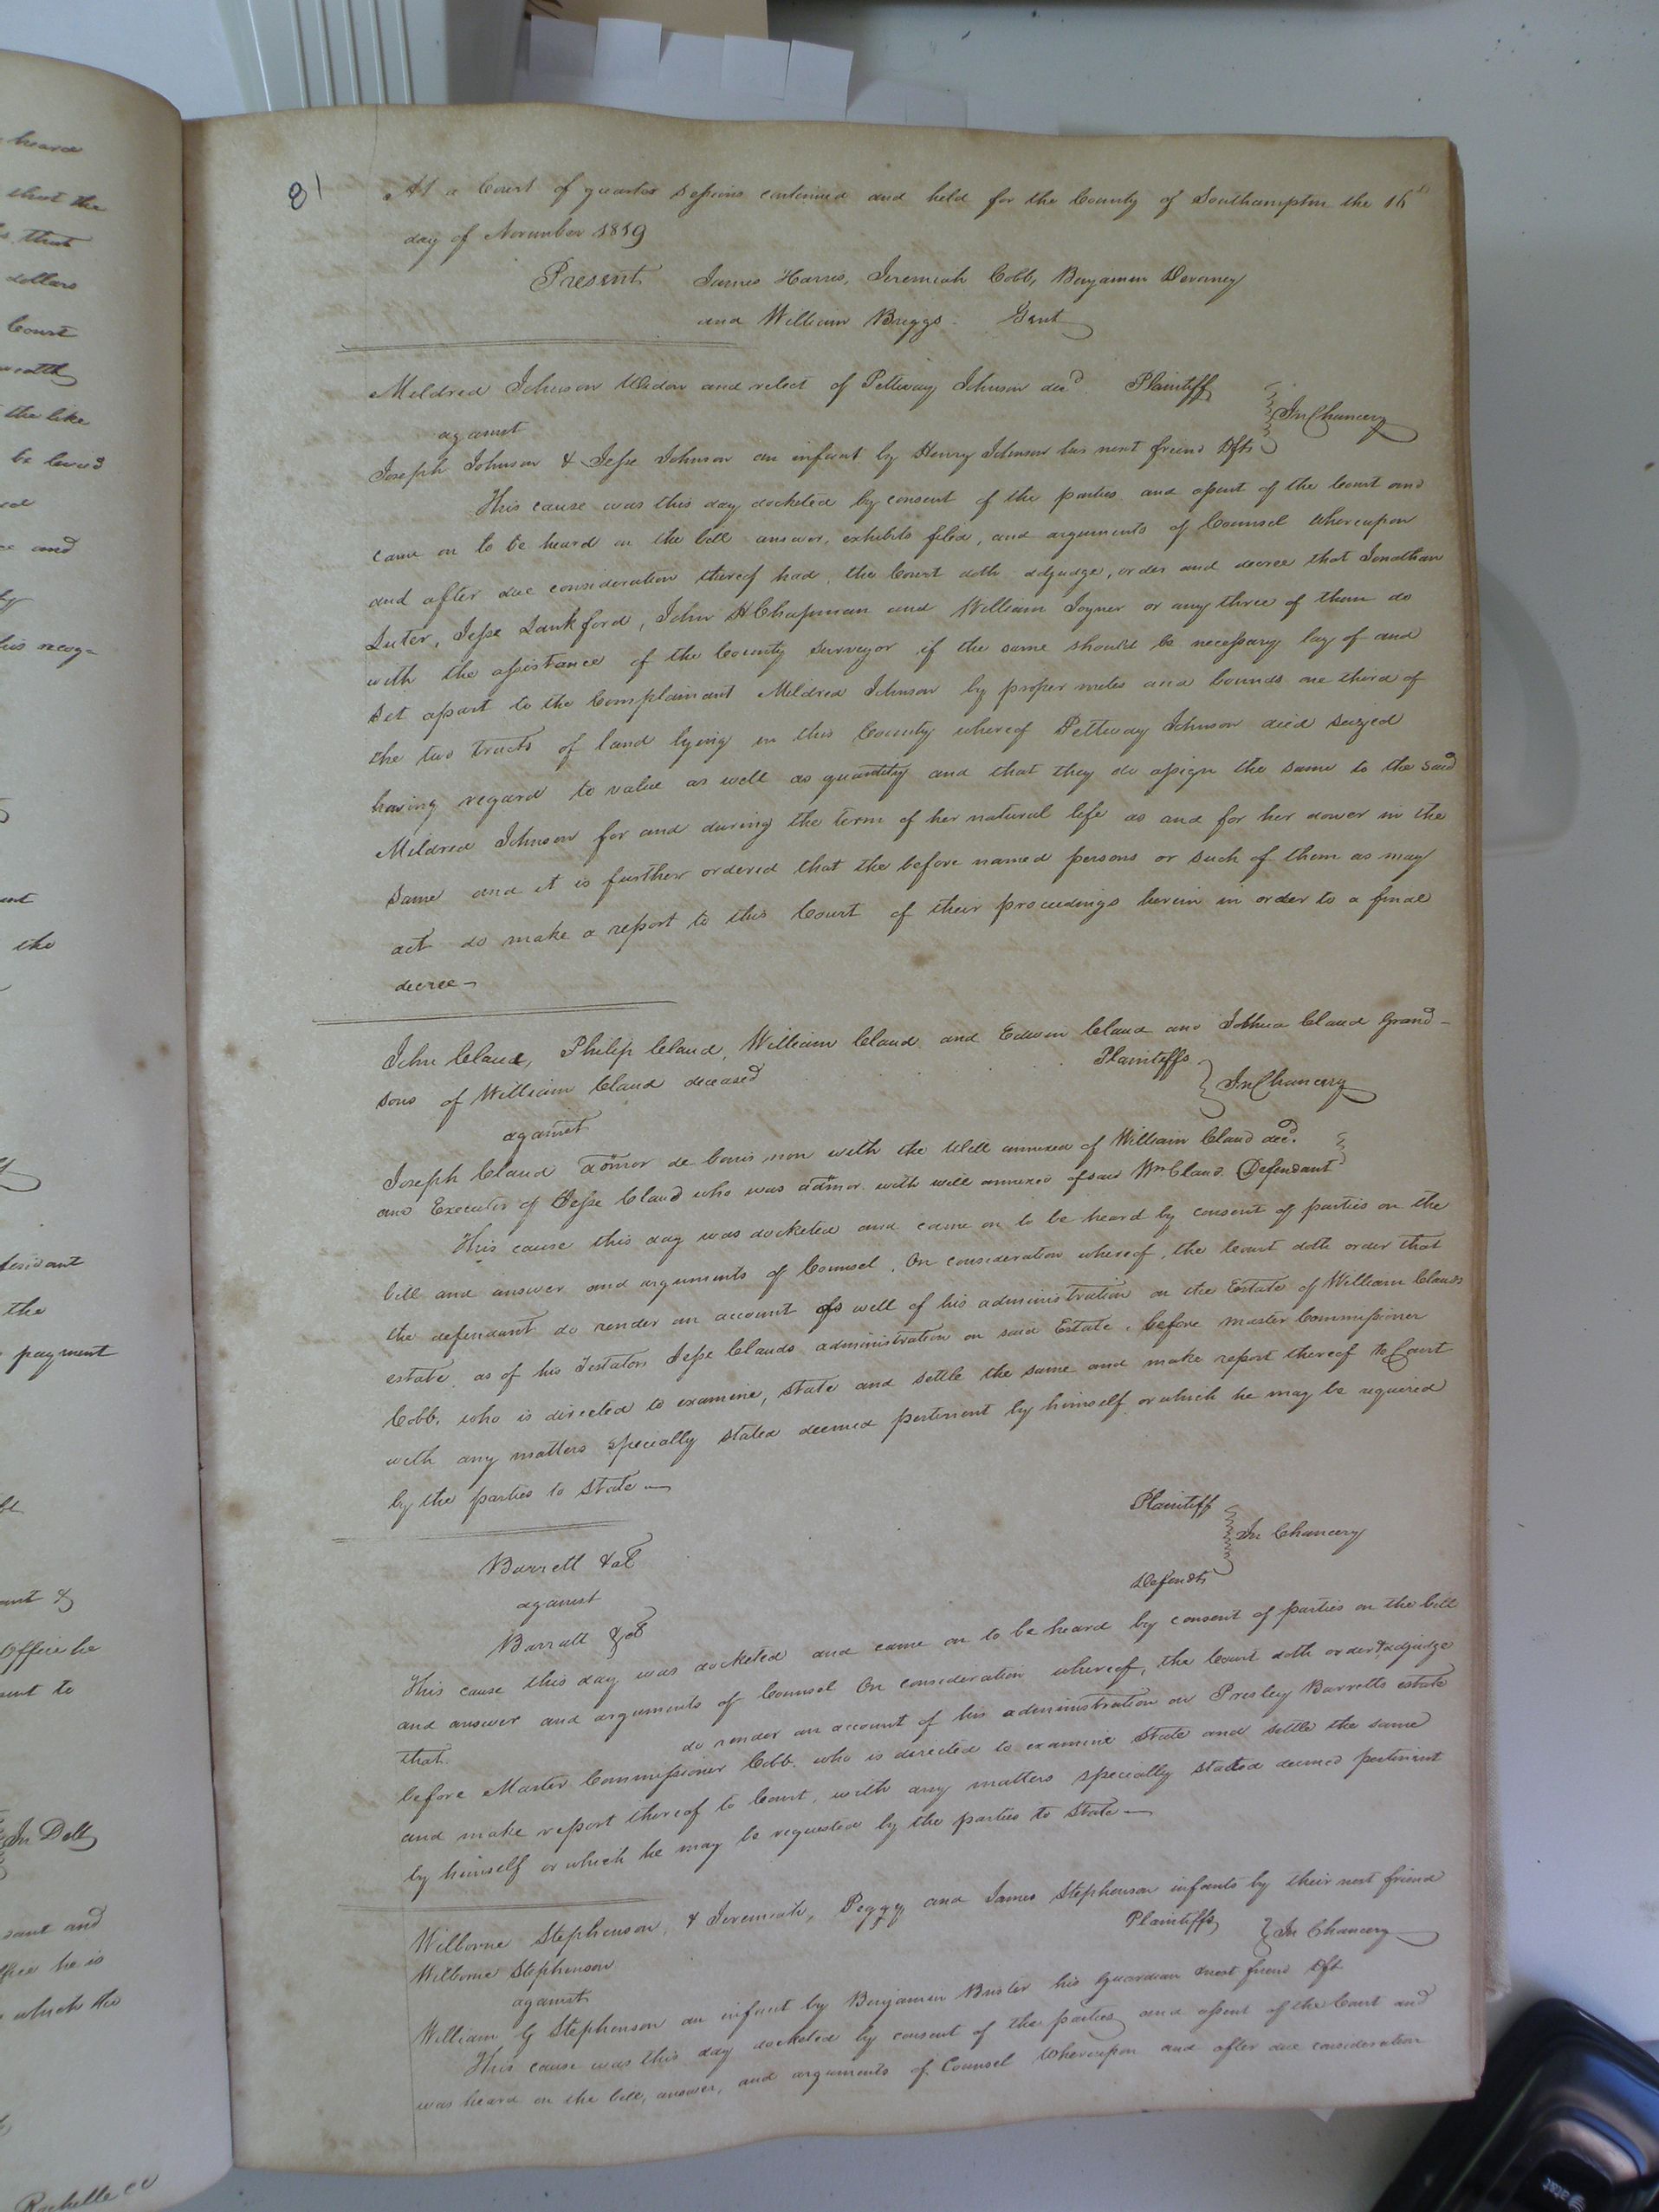 81
At a Court of quarter Sessions continued and held for the County of Southampton the 16th
day of November 1819
Present James Harris, Jeremiah Cobb, Benjamin Devaney
and William Briggs. Gent
Mildred Johnson Widow and relect of Pettway Johnson decd. Plaintiff
In Chancery
against
Joseph Johnson & Jesse Johnson an infant by Henry Johnson his next friend Dfts
This cause was this day docketed by consent of the parties and assent of the Court and
came on to be heard on the bill answer, exhibits filed, and arguments of Counsel whereupon
and after due consideration thereof had, the Court doth adjudge, order and decree that Jonathan
Luter, Jesse Lankford, John H Chapman and William Joyner or any three of them do
with the assistance of the County Surveyor if the same should be necessary lay of and
Set apart to the Complainant Mildred Johnson by proper metes and bounds one third of
the two tracts of land lying in this County whereof Pettway Johnson died seized
having regard to value as well as quantity and that they do assign the same to the said
Mildred Johnson for and during the term of her natural life as and for her dower in the
Same and it is further ordered that the before named persons or such of them as may
act do make a report to this Court of their proceedings herein in order to a final
decree
John Claud, Philip Claud, William Claud and Edwin Claud and Joshua Claud Grand-
sons of William Claud deceased Plaintiffs
In Chancery
against
Joseph Claud admor de bonis non with the Will annexed of William Claud decd.
and Executor of Jesse Claud who was admor. with will annexed of said Wm. Claud. Defendant
This cause this day was docketed and came on to be heard by consent of parties on the
bill and answer and arguments of Counsel. On consideration whereof, the Court doth order that
the defendant do render an account as well of his administration on the Estate of William Clauds
estate as of his Testators Jesse Clauds administration on said Estate, before master Commissioner
Cobb, who is directed to examine, state and settle the same and make report thereof to Court
with any matters specially stated deemed pertinent by himself or which he may be required
by the parties to State
Barrett &al Plaintiff
In Chancery
against
Barrett &al Defendts
This cause this day was docketed and came on to be heard by consent of parties on the bill
and answer and arguments of Counsel On consideration whereof, the Court doth order & adjudge
that do render an account of his administration on Presley Barretts estate
before Master Commissioner Cobb. who is directed to examine State and settle the same
and make report thereof to Court, with any matters specially stated deemed pertinent
by himself or which he may be requested by the parties to State
Wilborne Stephenson, & Jeremiah, Peggy and James Stephenson infants by their next friend
Wilborne Stephenson Plaintiffs
In Chancery
against
William G Stephenson an infant by Benjamin his Guardian & next friend Dft
This cause was this day docketed by consent of the parties and assent of the Court and
was heard on the bill, answer, and arguments of Counsel Whereupon and after due consideration